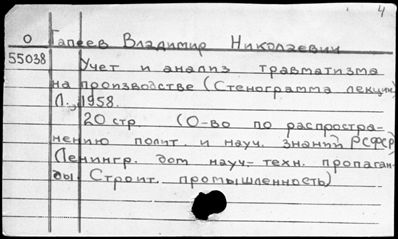 4
О Гапеев Владимир Николаевич
55038 Учет и анализ травматизма
на производстве (Стенограмма лекции)
Л., 1958.
20 стр (О-во по распростра-
нению полит. и науч. знаний РСФСР
Ленингр. дом науч.-техн. пропаган-
ды. Строит. промышленность)